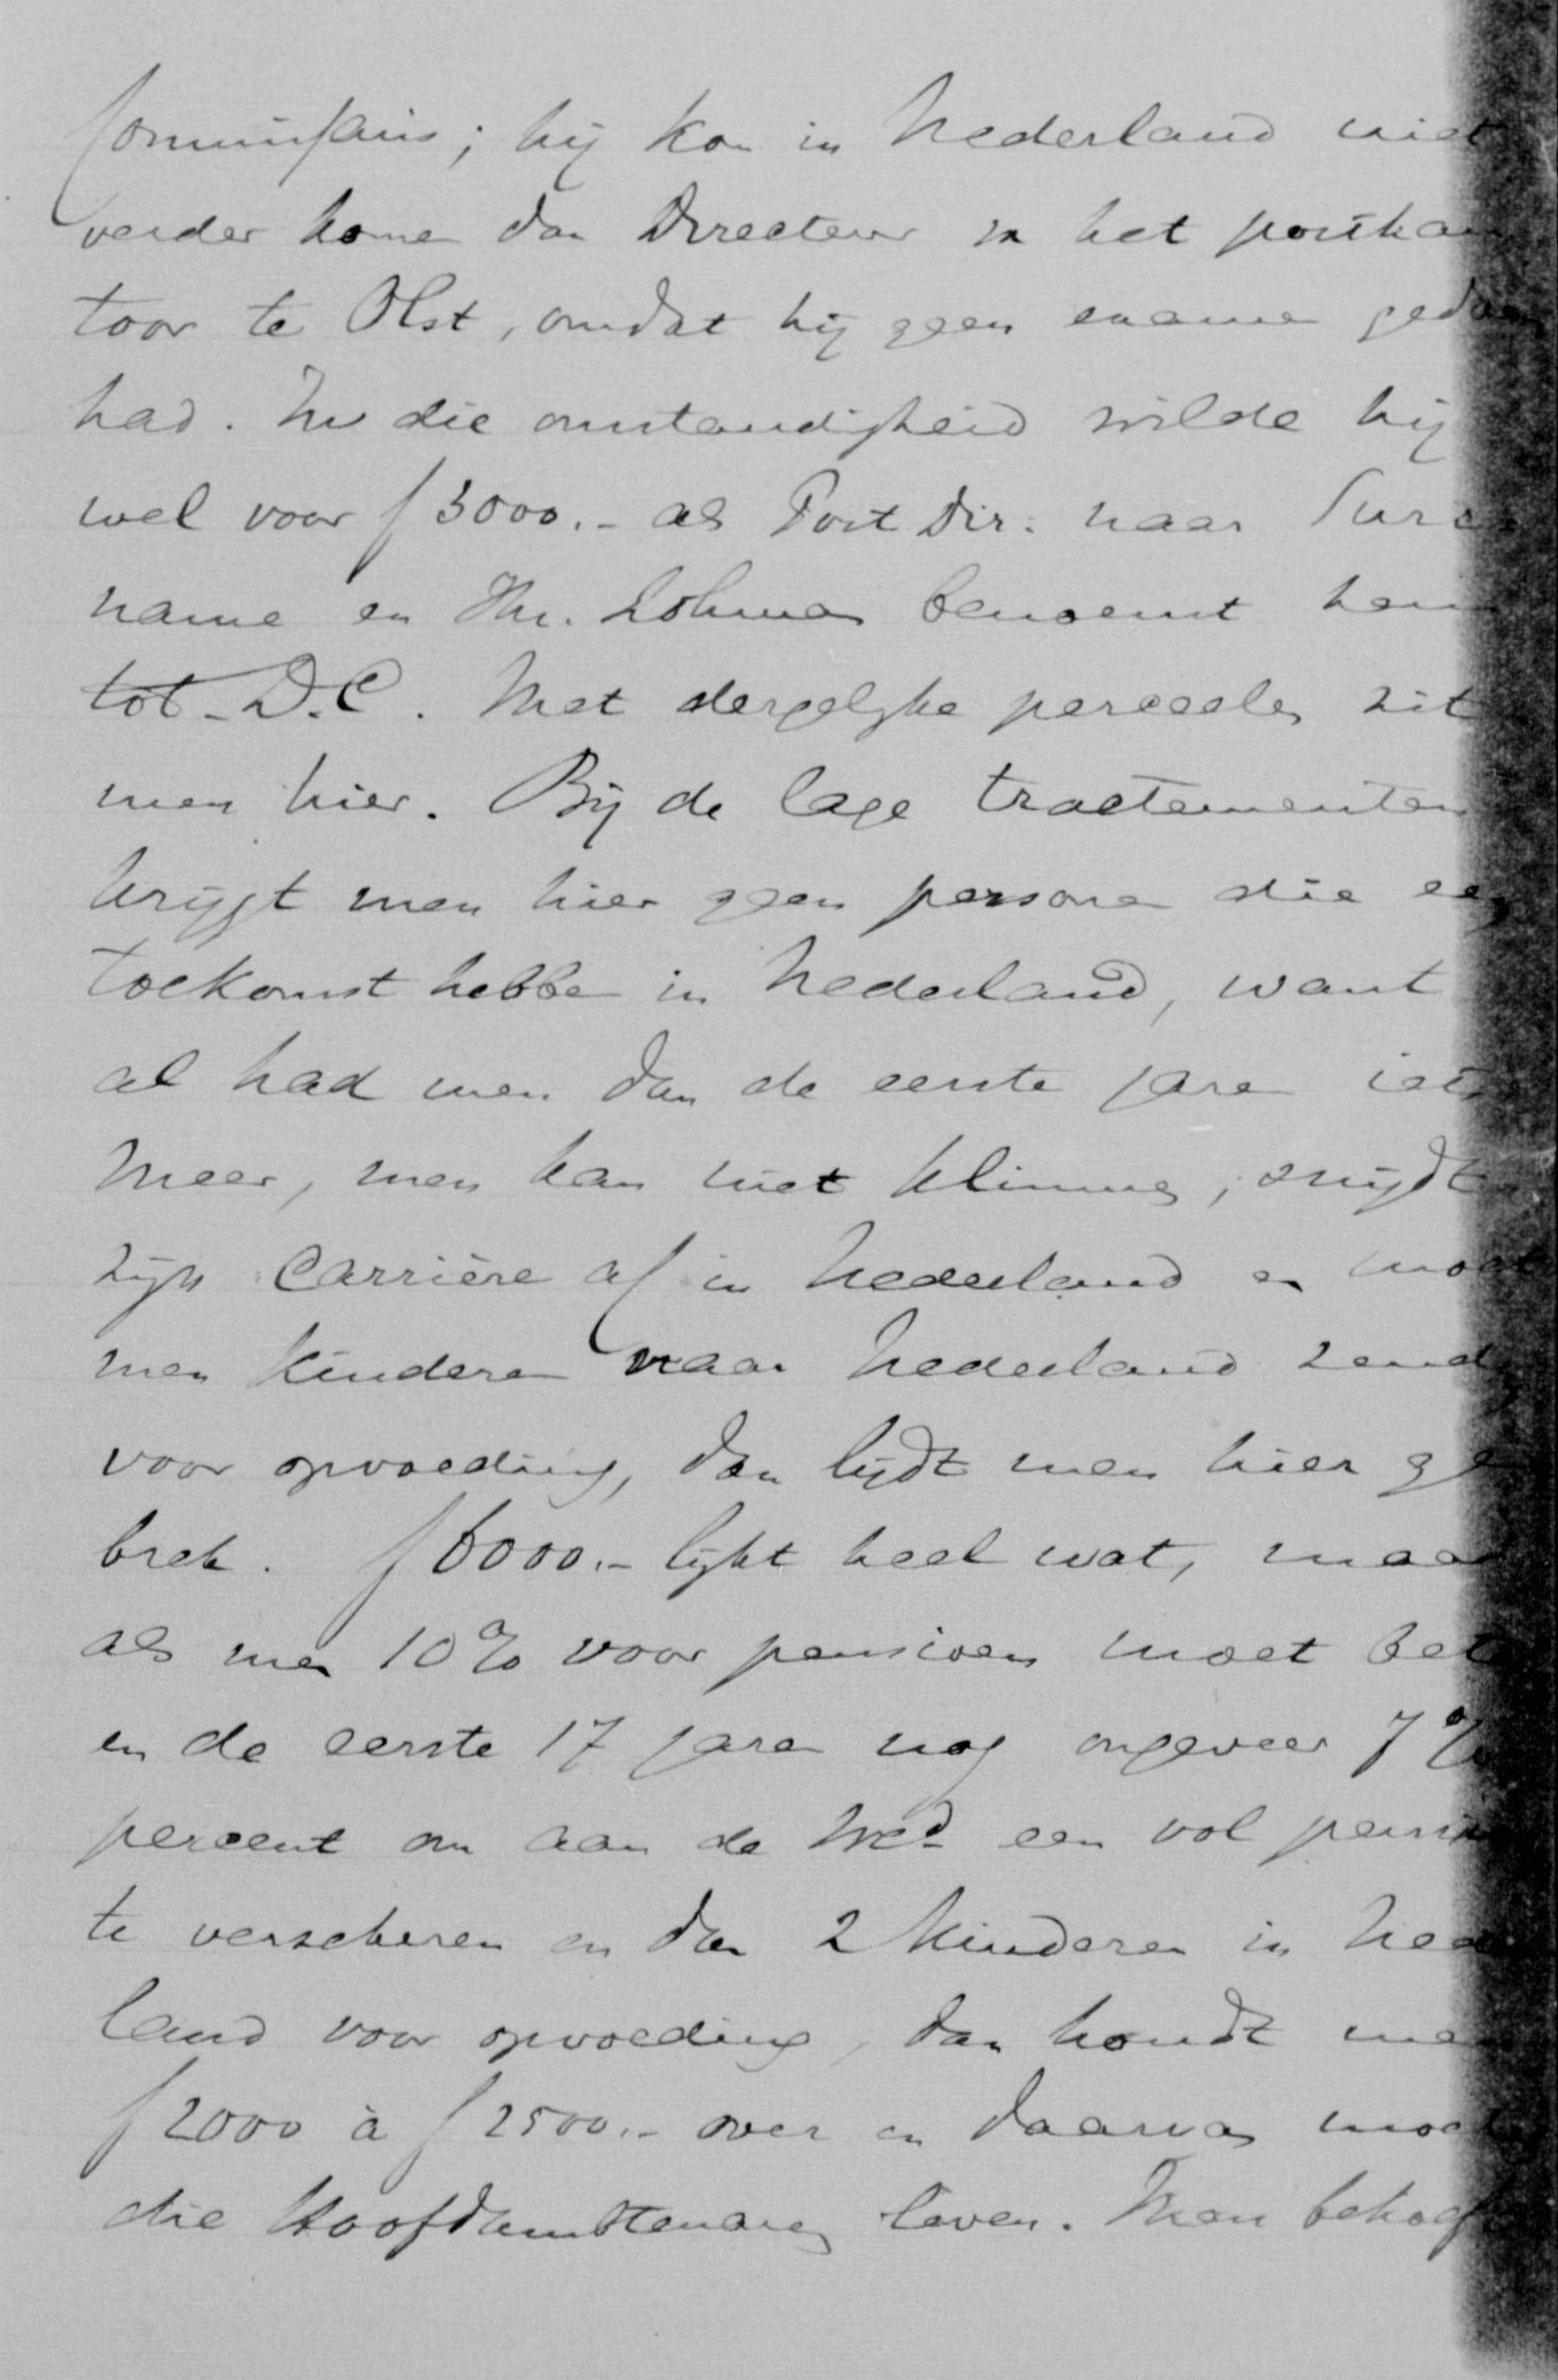 Commissaris; hij kon in Nederland niet
verder komen dan Directeur van het postkan
toor te Olst, omdat hij geen examen gedaan
had. In die omstandigheid wilde hij
wel voor f 3000.- als Post Dir. naar Suri
name en Jhr. Lohman benoemt hem
tot D.C. Met dergelijke perceelen zit
men hier. Bij de lage tractementen
krijgt men hier geen personen die een
toekomst hebben in Nederland, want
al had men dan de eerste jaren iets
meer, men kan niet klimmen, snijdt
zijn carrière af in Nederland en moet
men kinderen naar Nederland zenden
voor opvoeding, dan lijdt men hier ge
brek. f 6000.- lijkt heel wat, maar
als men 10% voor pensioen moet bet
en de eerste 17 jaren nog ongeveer 7%
percent om aan de Wed. een vol pensioen
te verzekeren en dan 2 kinderen in Neder
land voor opvoeding, dan houdt men
f 2000 à f 2500.- over en daarvan moet
die Hoofdambtenaren leven. Men behoeft